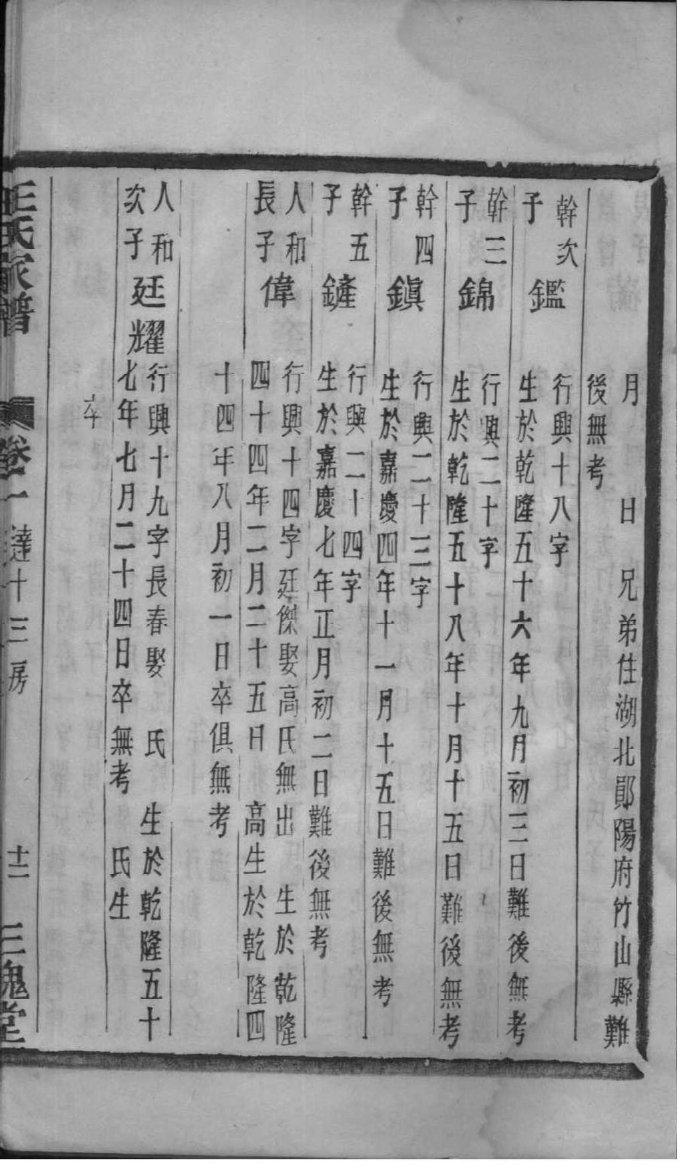 月　日　兄弟住湖北鄖陽府竹山縣難
後無考
幹次
子　鑑
行興十八字
生於乾隆五十六年九月初三日難後無考
幹三
子　錦
行興二十字
生於乾隆五十八年十月十五日難後無考
幹四
子　鎮
行興二十三字
生於嘉慶四年十一月十五日難後無考
幹五
子　鏟
行興二十四字
生於嘉慶七年正月初二日難後無考
人和
長子　偉
行興十四字廷傑娶高氏無出　生於乾隆
四十四年二月二十五日　高生於乾隆四
十四年八月初一日卒俱無考
人和
次子　廷耀
行興十九字長春娶　氏　生於乾隆五十
七年七月二十四日卒無考　氏生
卒
王氏家譜　卷一　達十三房　十二　三槐堂